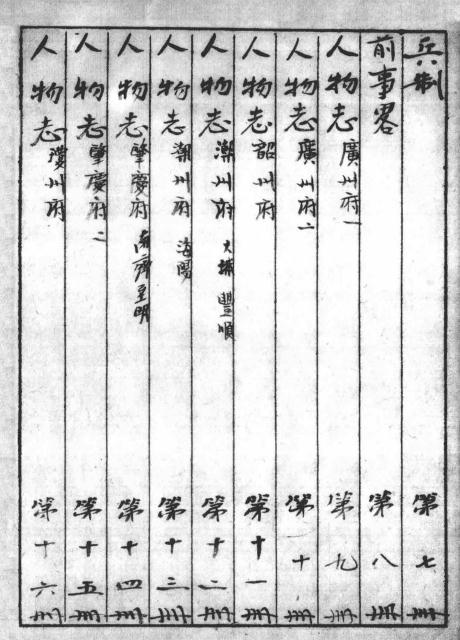 兵制 第七冊
前事畧 第八冊
人物志 廣州府一 第九冊
人物志 廣州府二 第十冊
人物志 韶州府 第十一冊
人物志 潮州府 大埔 豐順 第十二冊
人物志 潮州府 海陽 第十三冊
人物志 肇慶府 南齊至明 第十四冊
人物志 肇慶府二 第十五冊
人物志 瓊州府 第十六冊